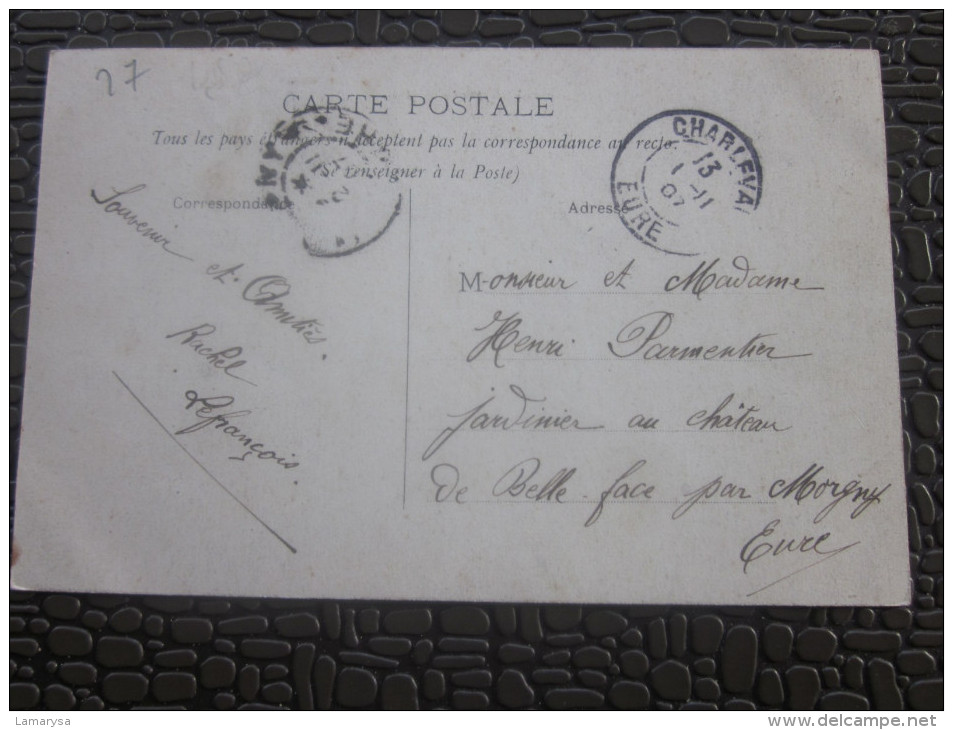 27
CARTE POSTALE
Tous les pays étrangers n'acceptent pas la correspondance au recto.
(Se renseigner à la Poste)
Correspondance
Souvenir
et Amitiés.
Rachel
Lefrançois.
CHARLEVAL
13
1 -11
07
EURE
Adresse
M-onsieur et Madame
Henri Parmentier
jardinier au château
de Belle-face par Morgny
Eure
Lamarysa
www.delcampe.net